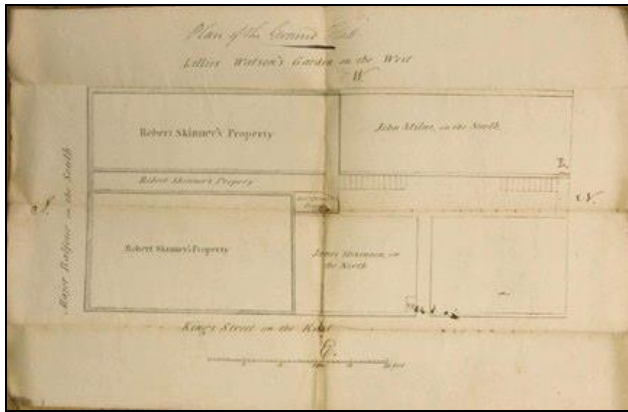 Plan of the Ground
Watson's Garden on the West
W
Robert Skinner's Property
John Milne, on the North
Robert Skinner's Propery
Major Balfour on the South
S.
N.
Robert Skinner's Property
on
the North
King's Street on the East
E.
feet